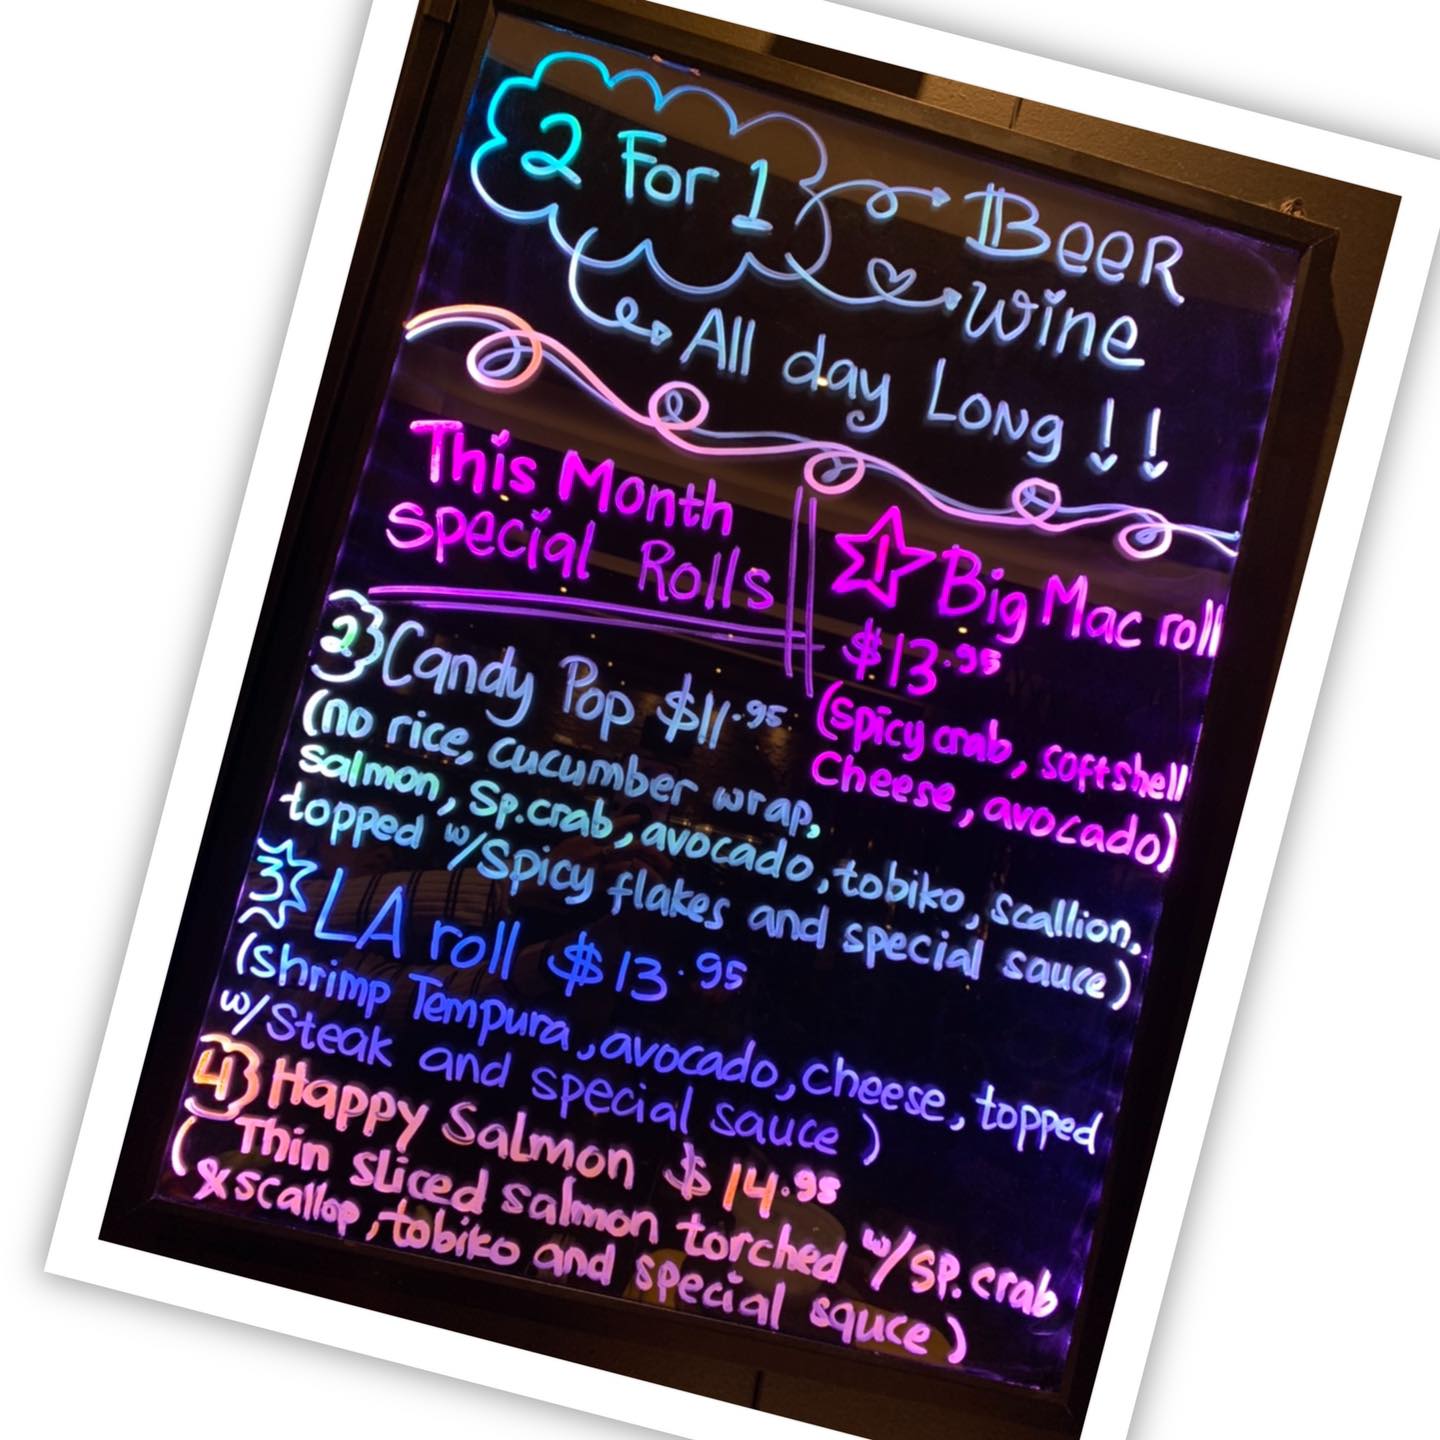 2 For 1
Beer
Wine
All day Long !!
This Month
Special Rolls
1 Big Mac roll
$13.95
(spicy crab, softshell
Cheese, avocado)
2 Candy Pop $11.95
(no rice, cucumber wrap,
salmon, Sp.crab, avocado, tobiko, scallion,
topped w/Spicy flakes and special sauce)
3 LA roll $13.95
(shrimp Tempura, avocado, cheese, topped
w/Steak and special sauce)
4 Happy Salmon $14.95
(Thin sliced salmon torched w/sp.crab
&scallop, tobiko and special sauce)